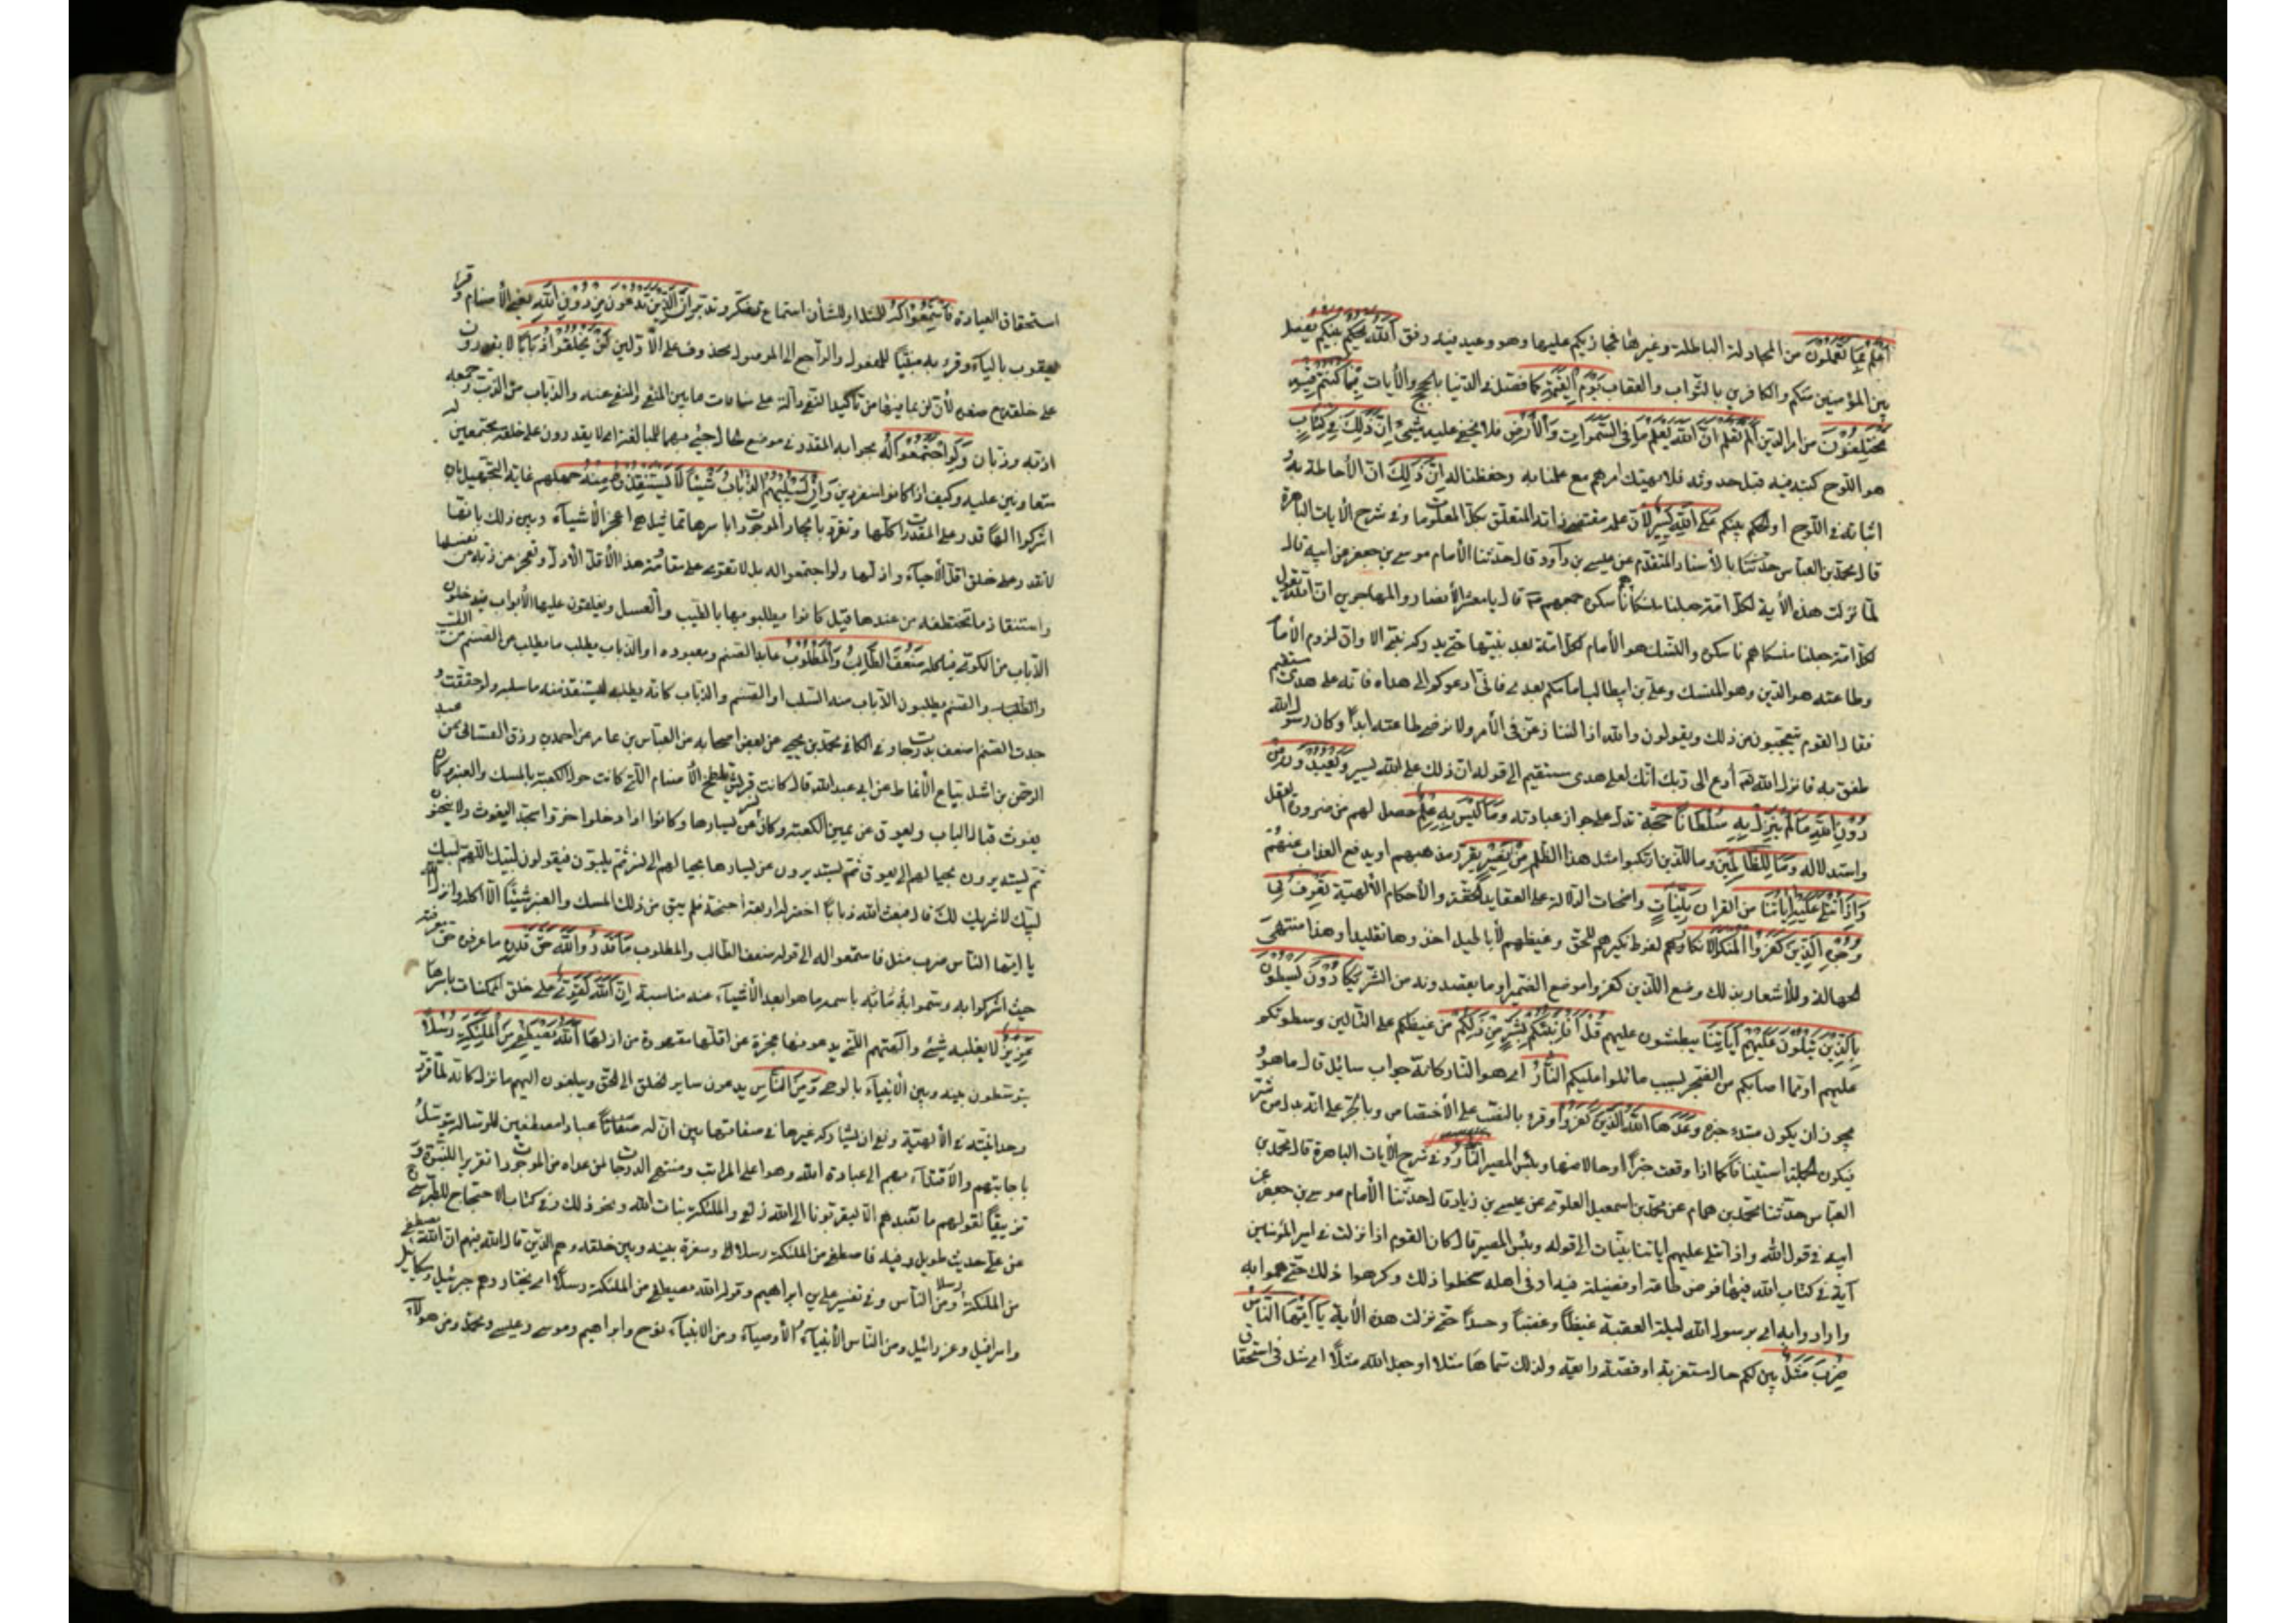 أعلم بما تعملون من المجادلة الباطلة وغيرها فمجازيكم عليها وهو وعيد فيه رفق الله يحكم بينكم يفصل
بين المؤمنين منكم والكافرين بالثواب والعقاب يوم القيمة كما فصل في الدنيا بالحجج والآيات فيما كنتم فيه
تختلفون من امر الدين ألم تعلم ان الله يعلم ما في السموات والأرض فلا يخفى عليه شيء ان ذلك في كتاب
هو اللوح كتبه فيه قبل حدوثه فلا يهمنك امرهم مع علمنا به وحفظنا له ان ذلك ان الأحاطة به و
اثباته في اللوح او الحكم بينكم على الله يسير لأن علمه مقتضى ذاته المتعلق بكل المعلومات وفي شرح الآيات الباهرة
قال محمد بن العباس حدثنا بالأسناد المتقدم عن عيسى بن داود قال حدثنا الأمام موسى بن جعفر عن ابيه قال
لما نزلت هذه الأية لكل امة جعلنا منسكا هم ناسكوه جمعهم ثم قال يا معشر الأنصار والمهاجرين ان الله يقول
لكل امة جعلنا منسكا هم ناسكوه والمنسك هو الأمام لكل امة بعد نبيها حتى يدركه نبي الا وان لزوم الأمام
وطاعته هو الدين وهو المنسك وعلي بن ابيطالب امامكم بعدي فاني ادعوكم الى هداه فانه على هدى مستقيم
فقام القوم يتعجبون من ذلك ويقولون والله اذا لننازعن في الأمر ولا نرضى طاعته ابدا وكان رسول الله
فانزل الله ادع الى ربك انك لعلى هدى مستقيم الى قوله ان ذلك على الله يسير ويعبدون من
دون الله ما لم ينزل به سلطانا حجة تدل على جواز عبادته وما ليس به علم حصل لهم من ضرورة العقل
واستدلاله وما للظالمين وما للذين ارتكبوا مثل هذا الظلم من نصير يقرر مذهبهم او يدفع العذاب عنهم
واذا تتلى عليهم آياتنا من القران بينات واضحات الدلالة على العقايد الحقة والأحكام الألهية تعرف في
وجوه الذين كفروا المنكر الانكار لفرط نكيرهم للحق وغيظهم لأباطيل اخذوها تقليدا وهذا منتهى
الجهالة وللأشعار بذلك وضع الذين كفروا موضع الضمير او ما يقصدونه من الشر يكادون يسطون
بالذين يتلون عليهم آياتنا يبطشون عليهم قل افانبئكم بشر من ذلكم من غيظكم على التالين وسطوتكم
عليهم او مما اصابكم من الضجر بسبب ما تلوا عليكم النار اي هو النار كانه جواب سائل قال ما هو و
يجوز ان يكون مبتدء خبره وعدها الله الذين كفروا وقرء بالنصب على الأختصاص وبالجر على انه بدل من شر
فيكون الجملة استينافا كما اذا وقعت خبرا او حالا منها وبئس المصير النار وفي شرح الآيات الباهرة قال محمد بن
العباس حدثنا محمد بن همام عن محمد بن اسمعيل العلوي عن عيسى بن داود قال حدثنا الأمام موسى بن جعفر عن
ابيه في قول الله واذا تتلى عليهم اياتنا بينات الى قوله وبئس المصير قال كان القوم اذا نزلت في امير المؤمنين
آية في كتاب الله فيها فرض طاعته او فضيلة فيه او في اهله سخطوا ذلك وكرهوا ذلك حتى هموا به
وارادوا به اي برسول الله ليلة العقبة غيظا وغضبا وحسدا حتى نزلت هذه الأية يا ايها الناس
ضرب مثل بين لكم حال مستغربة او قصة رايقة ولذلك سماها مثلا او جعل الله مثلا اي مثل في استحقاق
استحقاق العبادة فاستمعوا له للمثل او للشأن استماع تفكر وتدبر ان الذين تدعون من دون الله يعني الأصنام وقرأ
يعقوب بالياء وقرء به مبنيا للمفعول والراجع الى الموصول محذوف على الأولين لن يخلقوا ذبابا لا يقدرون
على خلقه مع صغره لأن لن بما فيها من تأكيد النفي دالة على منافات ما بين المنفي والمنفي عنه والذباب من الذب وجمعه
اذبة وذبان ولو اجتمعوا له بجوابه المقدر في موضع حال جيء بها للمبالغة اي لا يقدرون على خلقه مجتمعين له
متعاونين عليه وكيف اذا كانوا منفردين وان يسلبهم الذباب شيئا لا يستنقذوه منه جهلهم غاية التجهيل بان
اشركوا الها قدر على المقدورات كلها وتفرد بايجاد الموجودات باسرها تماثيل هي اعجز الأشياء وبين ذلك بانها
لا تقدر على خلق اقل الأحياء واذلها ولو اجتمعوا له بل لا تقوى على مقاومة هذا الأقل الأذل وتعجز عن ذبه عن نفسها
واستنقاذ ما تختطفه من عندها قيل كانوا يطلبونها بالطيب والعسل ويغلقون عليها الأبواب فيدخل
الذباب من الكوى فيأكله ضعف الطالب والمطلوب عابد الصنم ومعبوده او الذباب يطلب ما يطلب عن الصنم من الطيب
والصنم يطلب الذباب منه السلب او الصنم والذباب كانه يطلبه ليستنقذ منه ما سلبه ولو حققت و
جدت الصنم اضعف بدرجات وفي الكافي محمد بن يحيى عن بعض اصحابه عن العباس بن عامر عن احمد بن رزق الغمشاني عن عبد
الرحمن بن اشل بياع الأنماط عن ابي عبد الله قال كانت قريش تلطخ الأصنام التي كانت حول الكعبة بالمسك والعنبر وكان
يغوث قبال الباب ويعوق عن يمين الكعبة وكان نسر عن يسارها وكانوا اذا دخلوا خروا سجدا ليغوث ولا ينحنون
ثم يستديرون بحيالهم الى يعوق ثم يستديرون عن يسارها بحيالهم الى نسر ثم يلبون فيقولون لبيك اللهم لبيك
لبيك لا شريك لك قال فبعث الله ذبابا اخضر له اربعة اجنحة فلم يبق من ذلك المسك والعنبر شيئا الا اكله وانزل الله
يا ايها الناس ضرب مثل فاستمعوا له الى قوله ضعف الطالب والمطلوب ما قدروا الله حق قدره ما عرفوه حق معرفته
حيث اشركوا به وسموا باسمه ما هو ابعد الأشياء عنه مناسبة ان الله لقوي على خلق الممكنات باسرها
عزيز لا يغلبه شيء وآلهتهم التي يدعونها عجزة عن اقلها مقهورة من اذلها الله يصطفي من الملئكة رسلا
يتوسطون بينه وبين الأنبياء بالوحي ومن الناس يدعون ساير الخلق الى الحق ويبلغون اليهم ما نزل كانه لما قرر
وحدانيته في الألهية ونفى ان يشاركه غيره في صفاتها بين ان له عبادا مصطفين للرسالة يتوسل
باجابتهم والأقتداء بهم الى عبادة الله وهو اعلى المراتب ومنتهى الدرجات لمن عداه من الموجودات تقريرا للنبوة و
تزييفا لقولهم ما نعبدهم الا ليقربونا الى الله زلفى والملئكة بنات الله ونحو ذلك وفي كتاب الاحتجاج للطبرسي
عن علي حديث طويل وفيه فاصطفى من الملئكة رسلا وسفرة بينه وبين خلقه وهم الذين قال الله فيهم ان الله يصطفي
من الملئكة رسلا ومن الناس وفي تفسير علي بن ابراهيم وقوله الله يصطفي من الملئكة رسلا اي يختار وهم جبرئيل وميكائيل
واسرافيل وعزرائيل ومن الناس الأنبياء والأوصياء ومن الانبياء نوح وابراهيم وموسى وعيسى ومحمد ومن هؤلاء